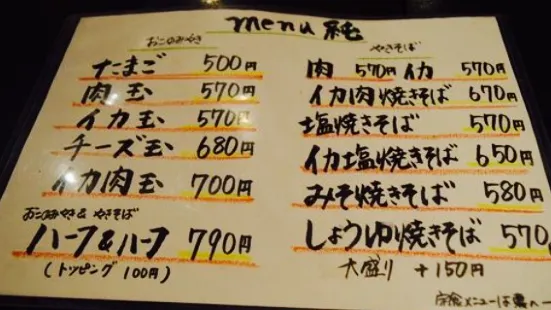 menu 純
おこのみやき
たまご 500円
肉玉 570円
イカ玉 570円
チーズ玉 680円
イカ肉玉 700円
おこのみやき& やきそば
ハーフ&ハーフ 790円
(トッピング 100円)
やきそば
肉 570円 イカ 570円
イカ肉焼きそば 670円
塩焼きそば 570円
イカ塩焼きそば 650円
みそ焼きそば 580円
しょうゆ焼きそば 570
大盛り +150円
定食メニューは裏へ